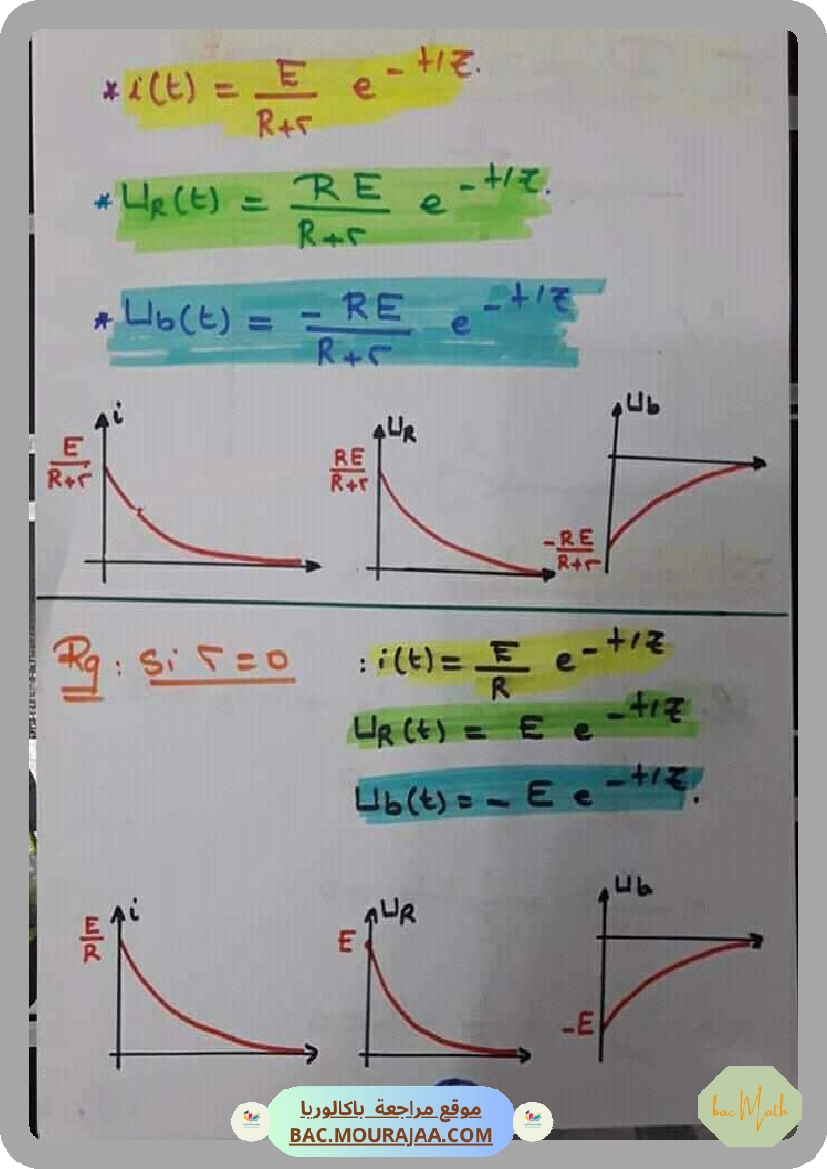 * i(t) = E/R+r e^-t/τ.
* UR(t) = RE/R+r e^-t/τ.
* Ub(t) = - RE/R+r e^-t/τ
i UR Ub
E/R+r RE/R+r -RE/R+r
Rq : si r = 0 : i(t) = E/R e^-t/τ
UR(t) = E e^-t/τ
Ub(t) = - E e^-t/τ.
i UR Ub
E/R E -E
موقع مراجعة باكالوريا
BAC.MOURAJAA.COM
bac Math